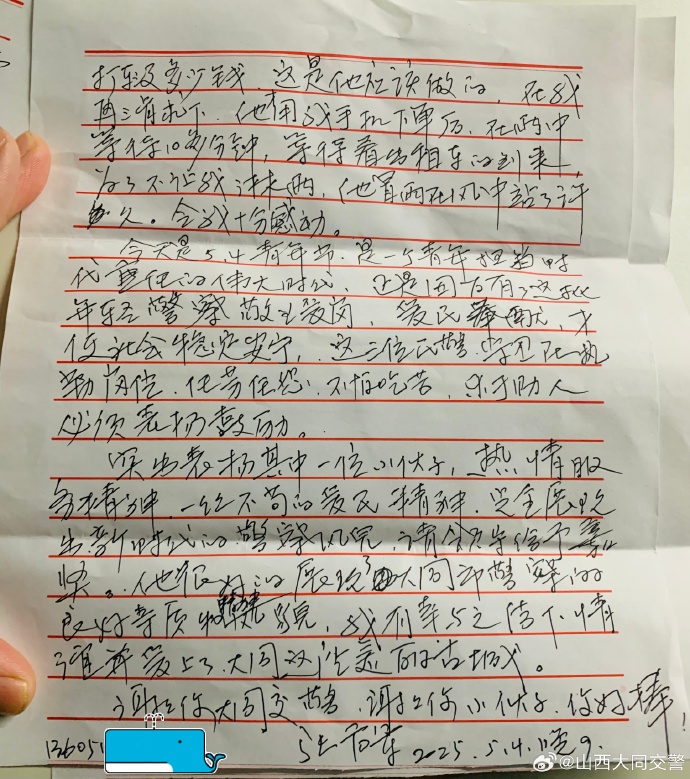 打车没多少钱，这是他应该做的，在我
再三请求下，他用我手机下单后，在雨中
等待10多分钟，等待着出租车的到来，
为了不让我淋雨，他冒雨在风中站了许
久。令我十分感动。
今天是5.4青年节，是一个青年担当时
代重任的伟大时代，正是因为有了这批
年轻警察敬业爱岗，爱民，才
使社会稳定安宁，这三位民警坚卫在执
勤岗位，任劳任怨，不怕吃苦，乐于助人
必须表扬鼓励。
突出表扬其中一位小伙子，热情服
务精神，一丝不苟的爱民精神，完全展现
出新时代的警察风范，请领导给予嘉
奖。他很好的展现了大同市警察的
良好素质和精神风貌，我有幸与之结下情
谊并爱上了大同这座美丽古城。
谢谢你大同交警，谢谢你小伙子，你好棒！
136051
2025.5.4.晚9.
@山西大同交警